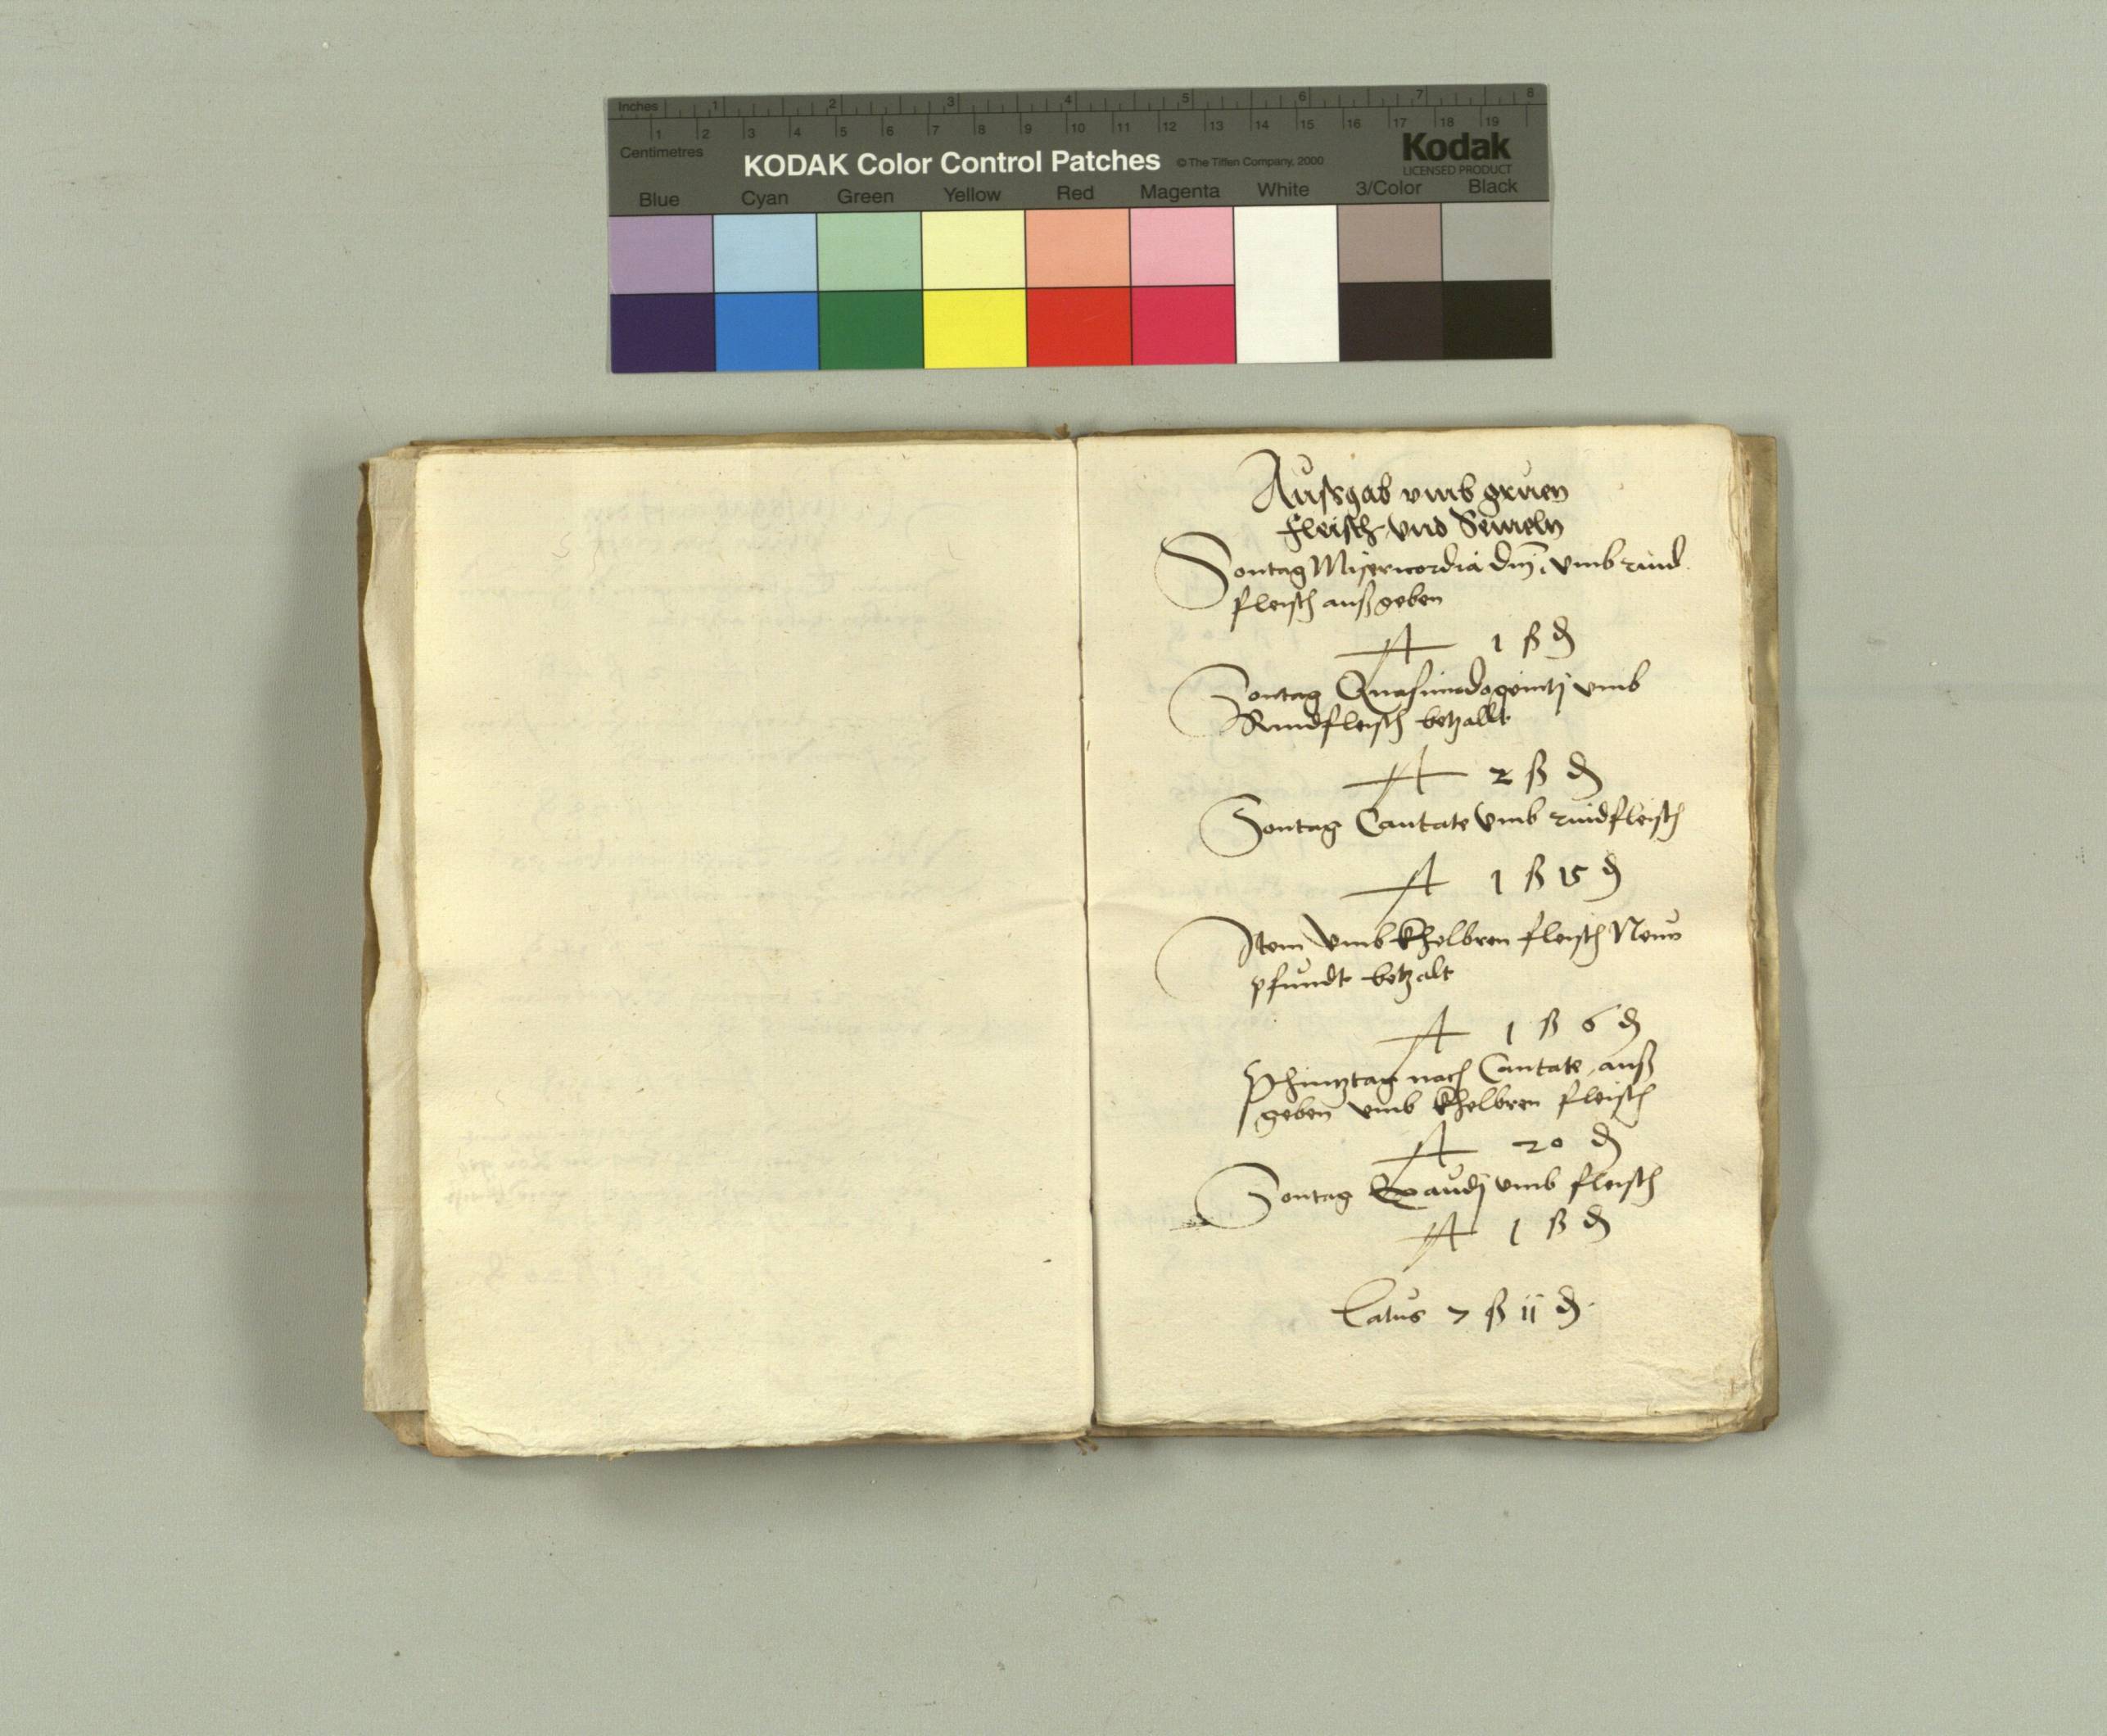 Inches 1 2 3 4 5 6 7 8
1 2 3 4 5 6 7 8 9 10 11 12 13 14 15 16 17 18 19
Centimetres
KODAK Color Control Patches © The Tiffen Company, 2000 Kodak
LICENSED PRODUCT
Blue Cyan Green Yellow Red Magenta White 3/Color Black
Außgab vmb gruen
fleisch vnd Semeln
Sontag Misericordia dnj, vmb rind
fleisch außgeben
1 ß ₰
Sontag Quasimodogenitj vmb
Rindfleisch betzallt
2 ß ₰
Sontag Cantate vmb rindfleisch
1 ß 15 ₰
Item vmb khelbren fleisch Neun
pfundt betzalt
1 ß 6 ₰
Phintztag nach Cantate, auß
geben vmb khelbren fleisch
20 ₰
Sontag Exaudj vmb fleisch
1 ß ₰
Latus 7 ß 11 ₰